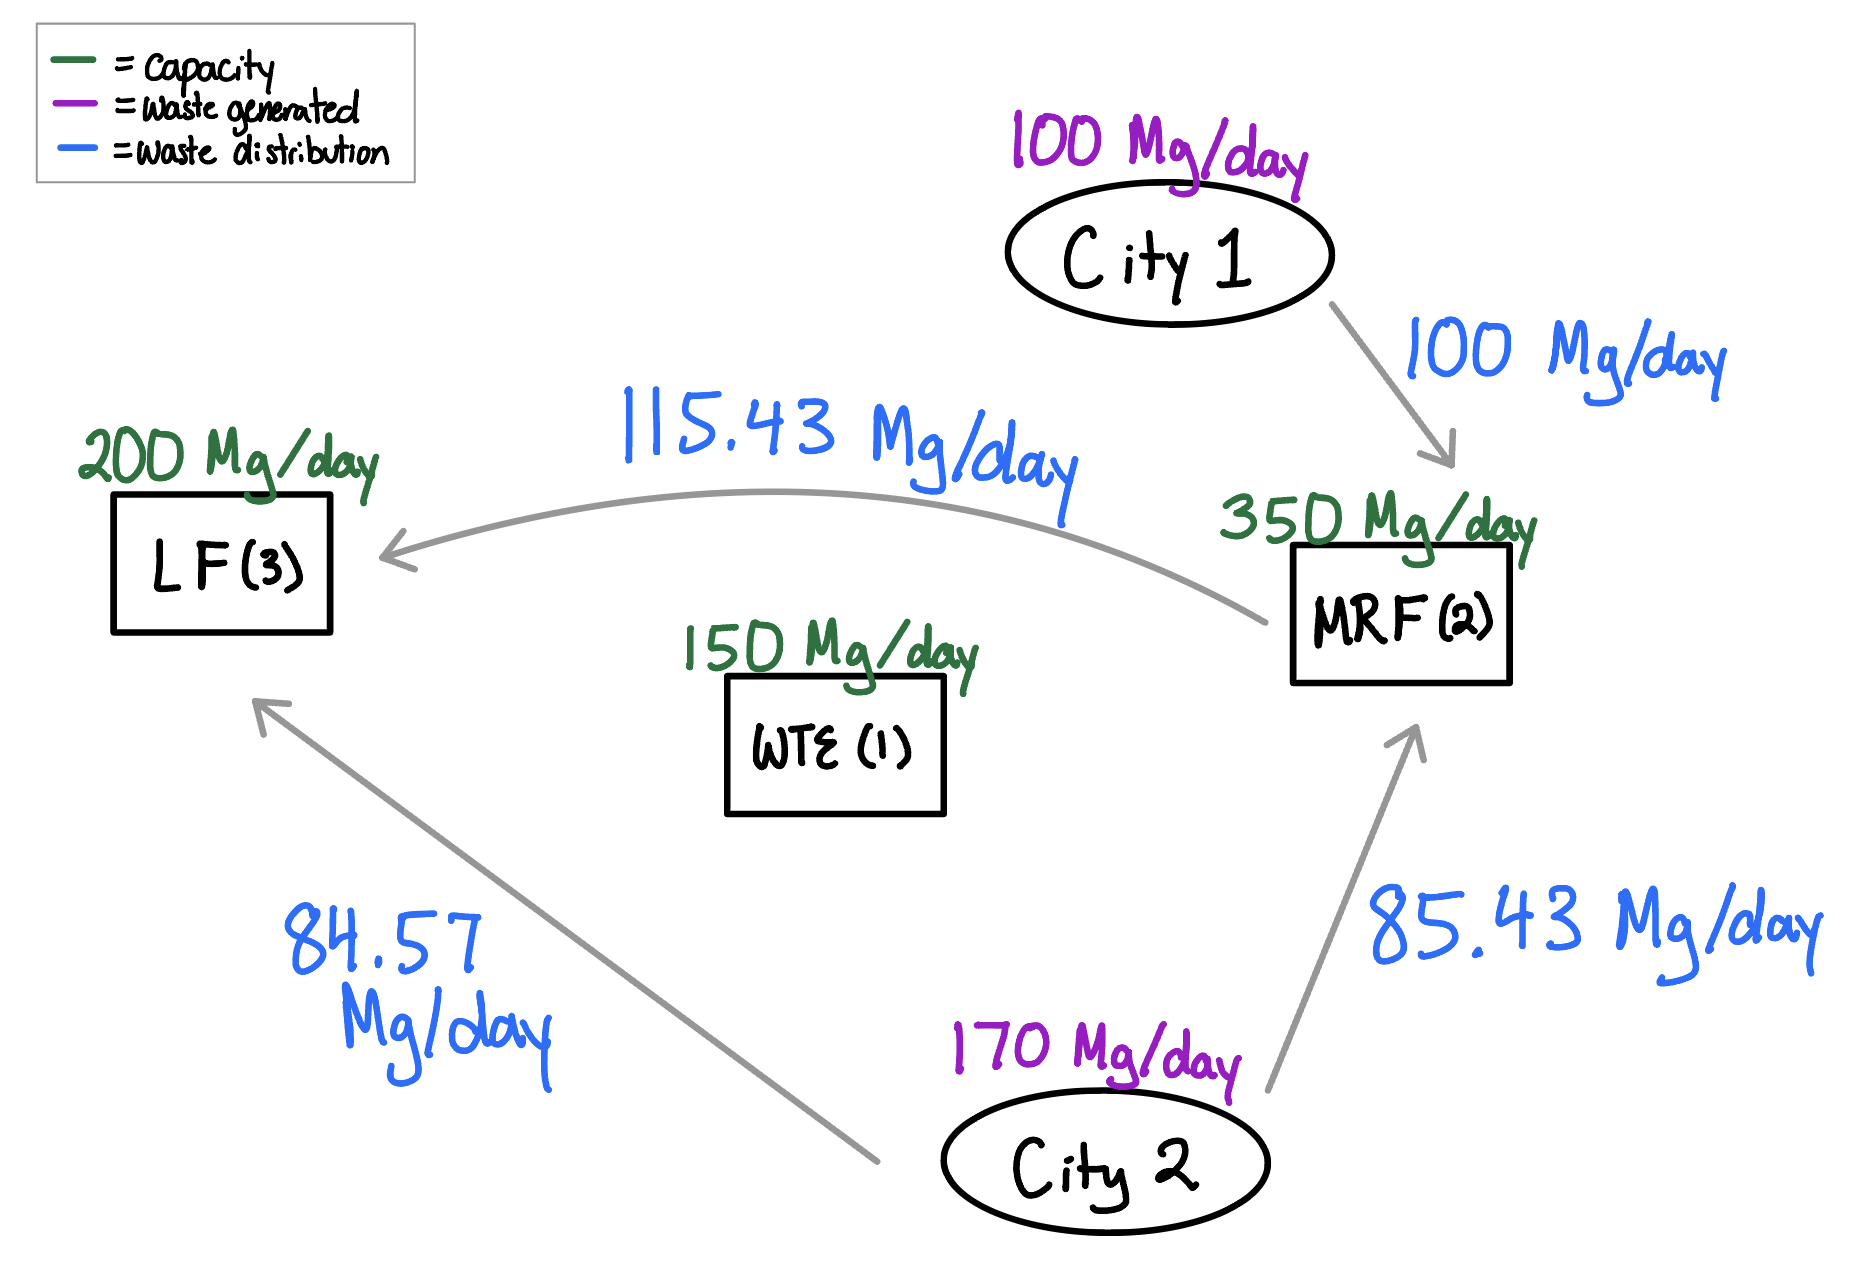 = Capacity
= Waste generated
= Waste distribution
100 Mg/day
City 1
100 Mg/day
115.43 Mg/day
200 Mg/day
LF (3)
350 Mg/day
MRF (2)
150 Mg/day
WTE (1)
84.57
Mg/day
85.43 Mg/day
170 Mg/day
City 2